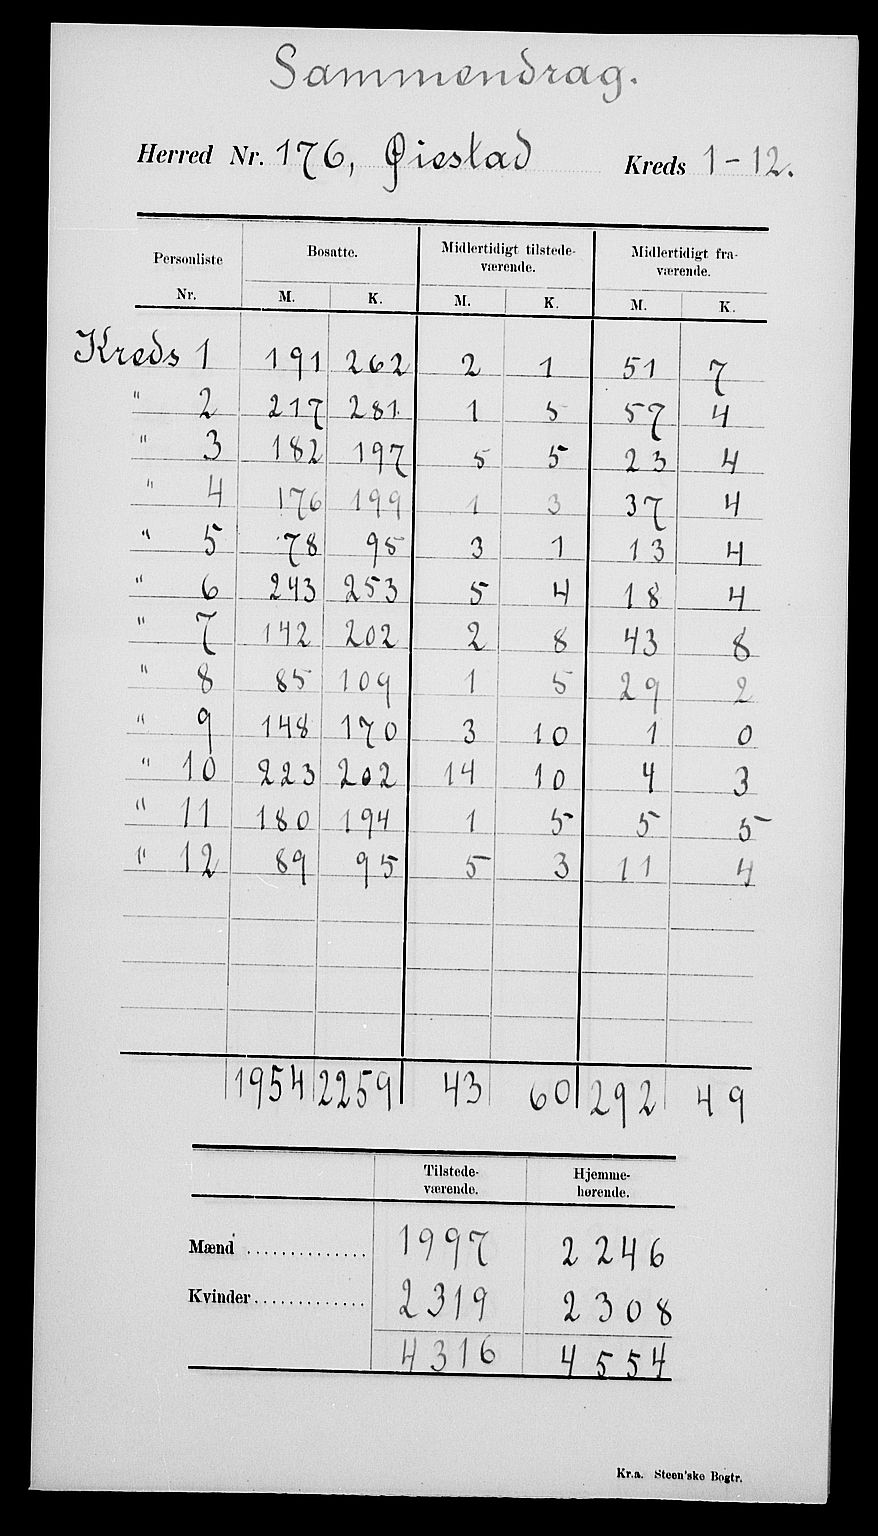 Sammendrag.
Herred Nr. 176, Øiestad Kreds 1-12.
Personliste Nr. Bosatte. Midlertidigt tilstede- værende. Midlertidigt fra- værende.
M. K. M. K. M. K.
Kreds 1 191 262 2 1 51 7
" 2 217 281 1 5 57 4
" 3 182 197 5 5 23 4
" 4 176 199 1 3 37 4
" 5 78 95 3 1 13 4
" 6 243 253 5 4 18 4
" 7 142 202 2 8 43 8
" 8 85 109 1 5 29 2
" 9 148 170 3 10 1 0
" 10 223 202 14 10 4 3
" 11 180 194 1 5 5 5
" 12 89 95 5 3 11 4
1954 2259 43 60 292 49
Tilstede- værende. Hjemme- hørende.
Mænd .............. 1997 2246
Kvinder ............. 2319 2308
4316 4554
Kr.a. Steen'ske Bogtr.